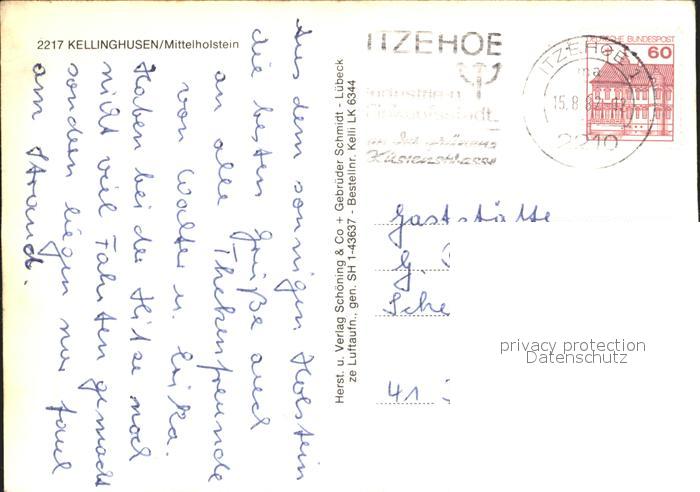 2217 KELLINGHUSEN/Mittelholstein
Aus dem sonnigen Holstein
die besten Grüße auch
an alle Thekenfreunde
von Walter u. Erika.
Haben bei der Hitze noch
nicht viel Fahrten gemacht
sondern liegen nur faul
am Strand.
Herst. u. Verlag Schöning & Co + Gebrüder Schmidt - Lübeck
ze Luftaufn., gen. SH 1-43637 - Bestellnr. Kelli LK 6344
ITZEHOE
Küstenstrasse
ITZEHOE 1
ma
15.8.82
2210
DEUTSCHE BUNDESPOST
60
Gaststätte
G.
Sche
41
privacy protection
Datenschutz